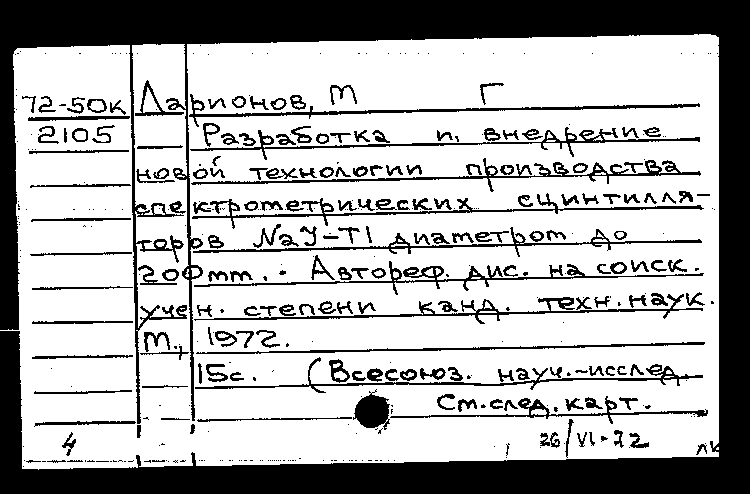 72-50к Ларионов, М Г
2105 Разработка и внедрение
новой технологии производства
спектрометрических сцинтилля-
торов NaJ-Tl диаметром до
200mm. - Автореф. дис. на соиск.
учен. степени канд. техн. наук.
М., 1972.
15с. (Всесоюз. науч.-исслед.
См. след. карт.
4 26/VI-72 лк